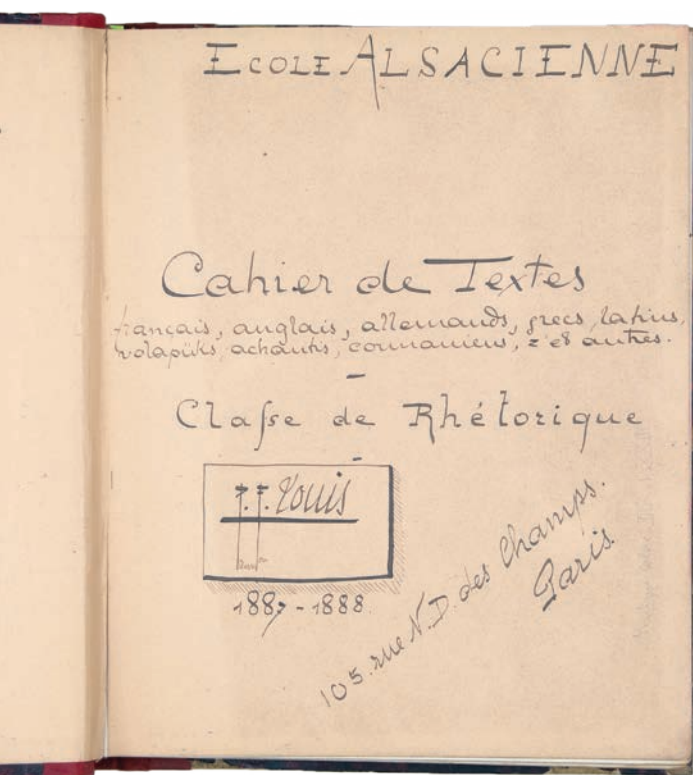 ECOLE ALSACIENNE
Cahier de Textes
français, anglais, allemands, grecs, latins,
volapüks, achantis, comaniens, z'et autres.
Classe de Rhétorique
P. F. Louis
1887-1888
105. rue N. D. des Champs.
Paris